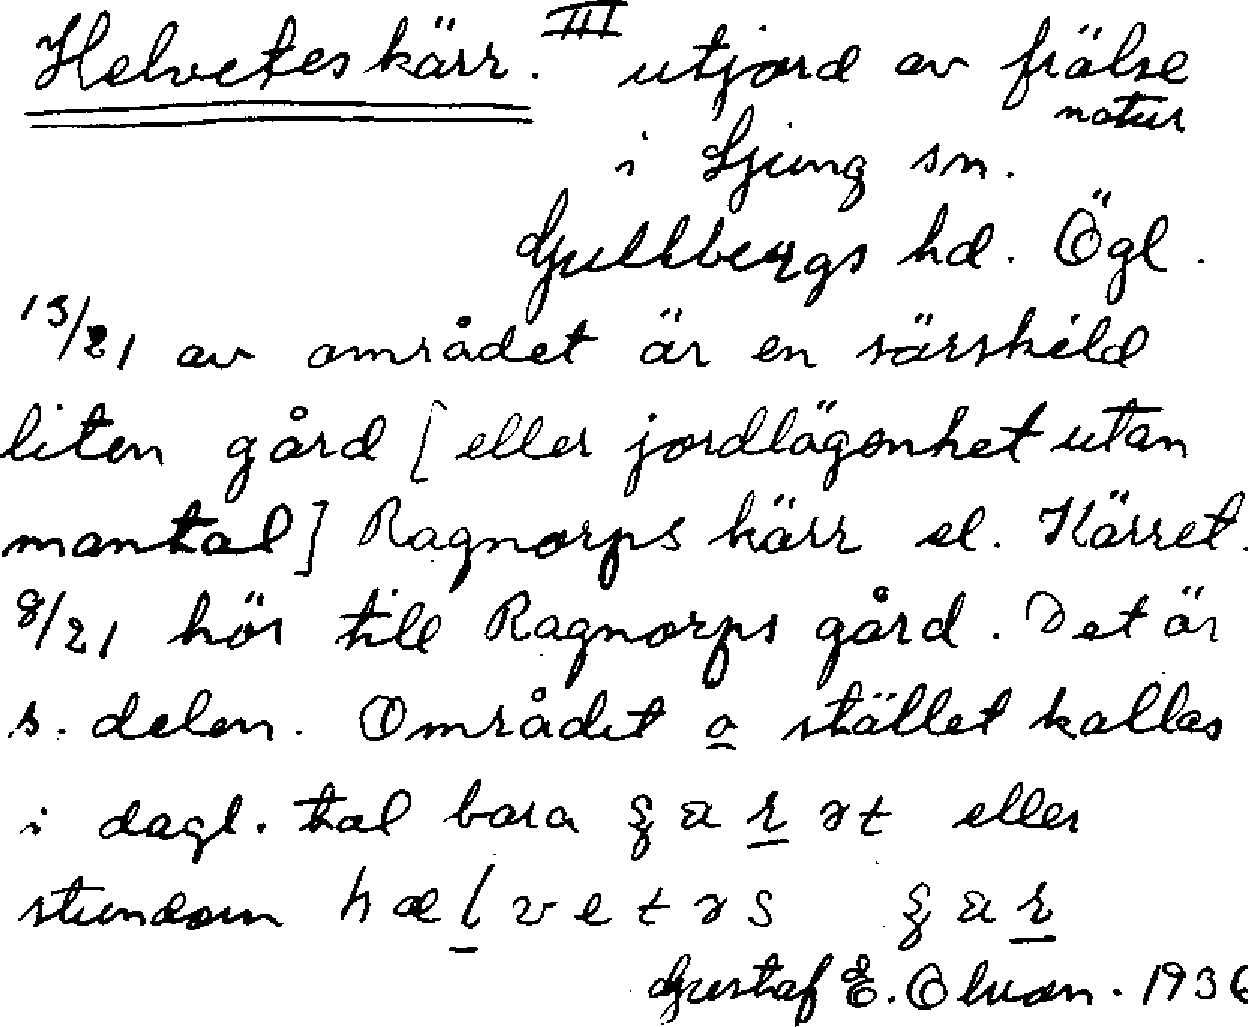 Helveteskärr. III utjord av frälse
natur
i Ljung sn.
Gullbergs hd. Ögl.
13/21 av området är en särskild
liten gård [eller jordlägenhet utan
mantal] Ragnorps kärr el. Kärret.
8/21 hör till Ragnorps gård. Det är
s. delen. Området o stället kallas
i dagl. tal bara
eller
stundom
Gustaf E. Olson. 1936